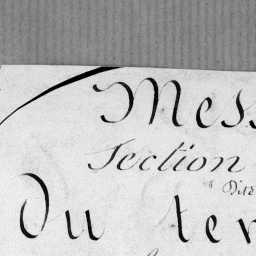 Mess
Section
Dite
Du ter